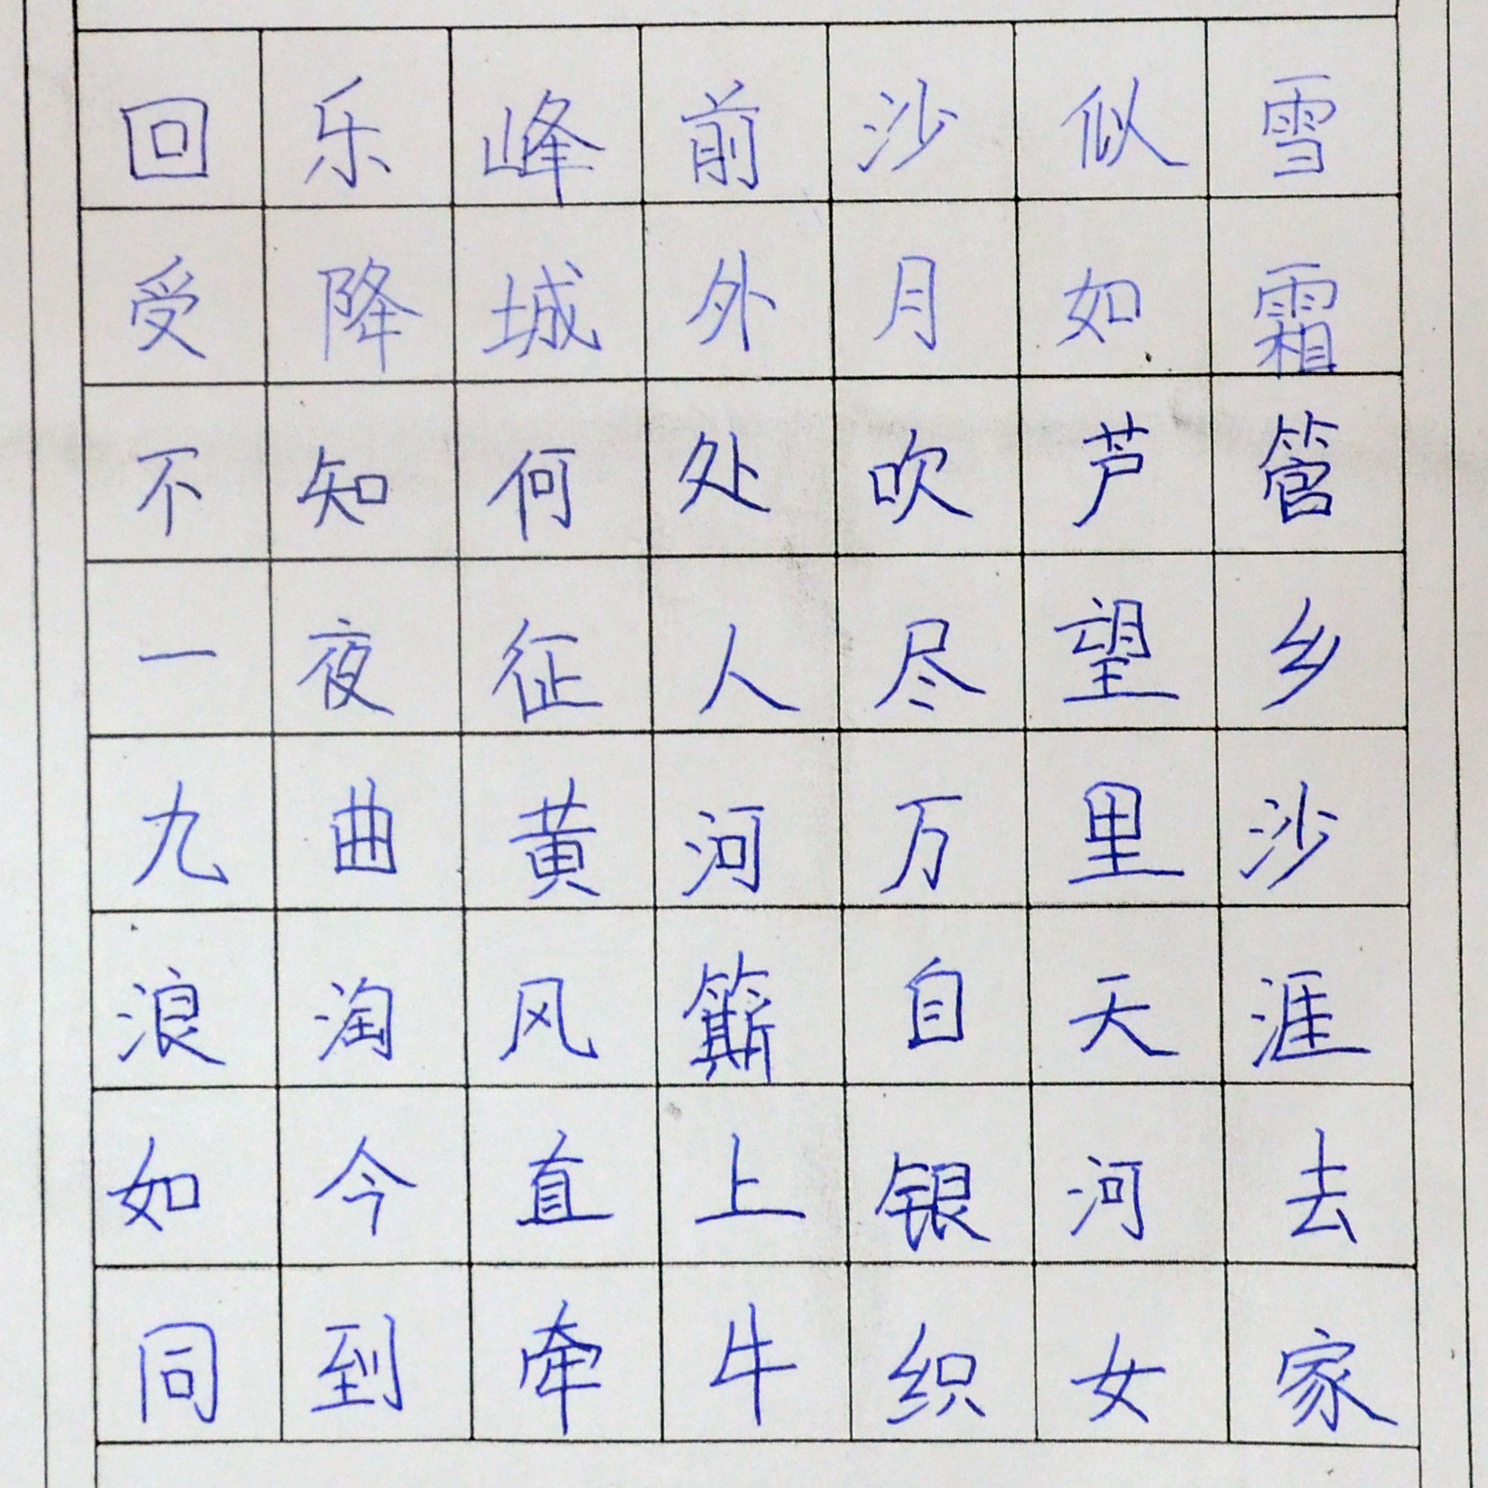 回乐峰前沙似雪
受降城外月如霜
不知何处吹芦管
一夜征人尽望乡
九曲黄河万里沙
浪淘风簸自天涯
如今直上银河去
同到牵牛织女家